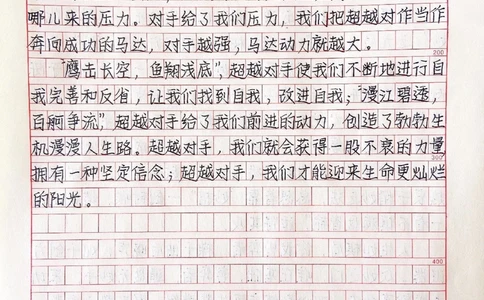 哪儿来的压力。对手给了我们压力，我们把超越对作当作
奔向成功的马达，对手越强，马达动力就越大。
200
"鹰击长空，鱼翔浅底"，超越对手使我们不断地进行自
我完善和反省，让我们找到自我，改进自我；"漫江碧透，
百舸争流"，超越对手给了我们前进的动力，创造了勃勃生
机漫漫人生路。超越对手，我们就会获得一股不衰的力量
300
拥有一种坚定信念；超越对手，我们才能迎来生命更灿烂
的阳光。
400